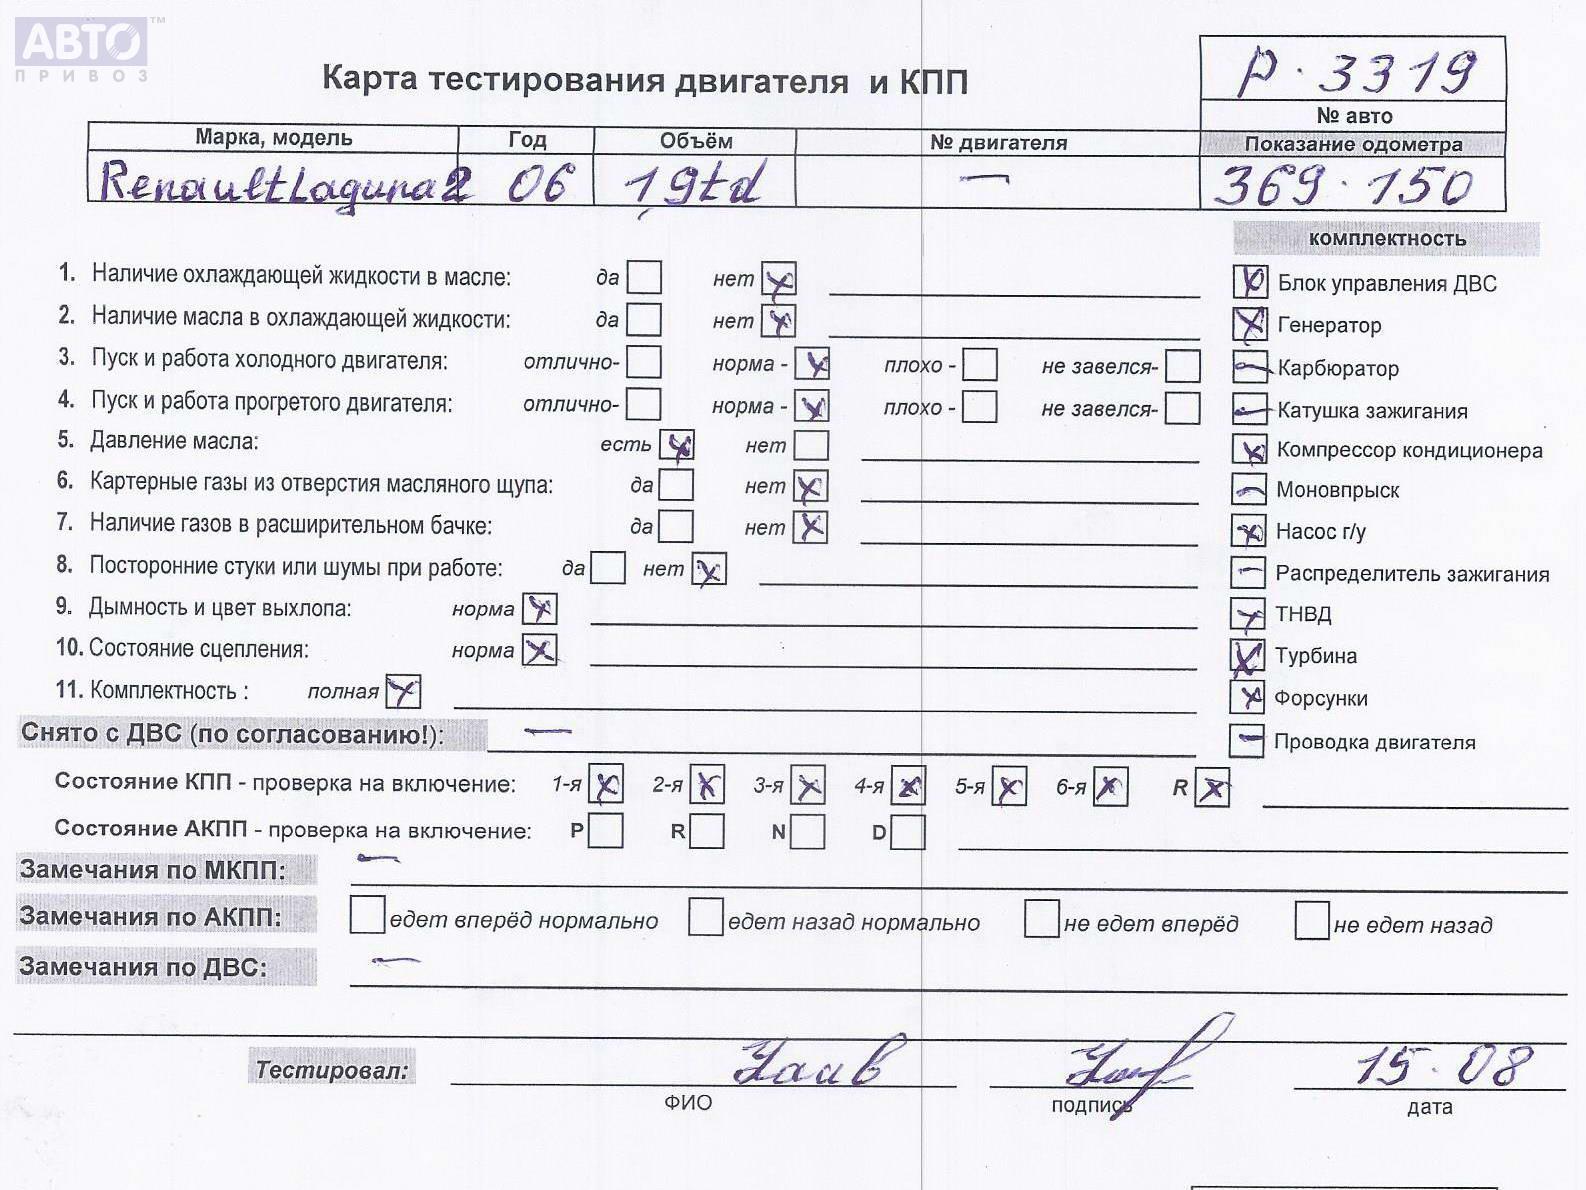 АВТО™
ПРИВОЗ
Карта тестирования двигателя и КПП
Р · 3319
№ авто
Марка, модель Год Объём № двигателя Показание одометра
Renault Laguna 2 06 1,9td — 369 · 150
комплектность
1. Наличие охлаждающей жидкости в масле: да нет
Блок управления ДВС
2. Наличие масла в охлаждающей жидкости: да нет
Генератор
3. Пуск и работа холодного двигателя: отлично- норма - плохо - не завелся-
Карбюратор
4. Пуск и работа прогретого двигателя: отлично- норма - плохо - не завелся-
Катушка зажигания
5. Давление масла: есть нет
Компрессор кондиционера
6. Картерные газы из отверстия масляного щупа: да нет
Моновпрыск
7. Наличие газов в расширительном бачке: да нет
Насос г/у
8. Посторонние стуки или шумы при работе: да нет
Распределитель зажигания
9. Дымность и цвет выхлопа: норма
ТНВД
10. Состояние сцепления: норма
Турбина
11. Комплектность : полная
Форсунки
Снято с ДВС (по согласованию!): —
Проводка двигателя
Состояние КПП - проверка на включение: 1-я 2-я 3-я 4-я 5-я 6-я R
Состояние АКПП - проверка на включение: P R N D
Замечания по МКПП: —
Замечания по АКПП: едет вперёд нормально едет назад нормально не едет вперёд не едет назад
Замечания по ДВС: —
Тестировал: 15 · 08
ФИО подпись дата